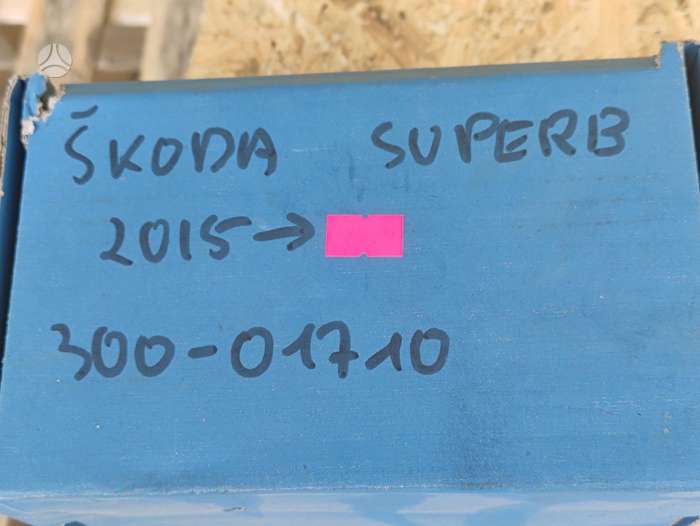 ŠKODA SUPERB
2015→
300-01710